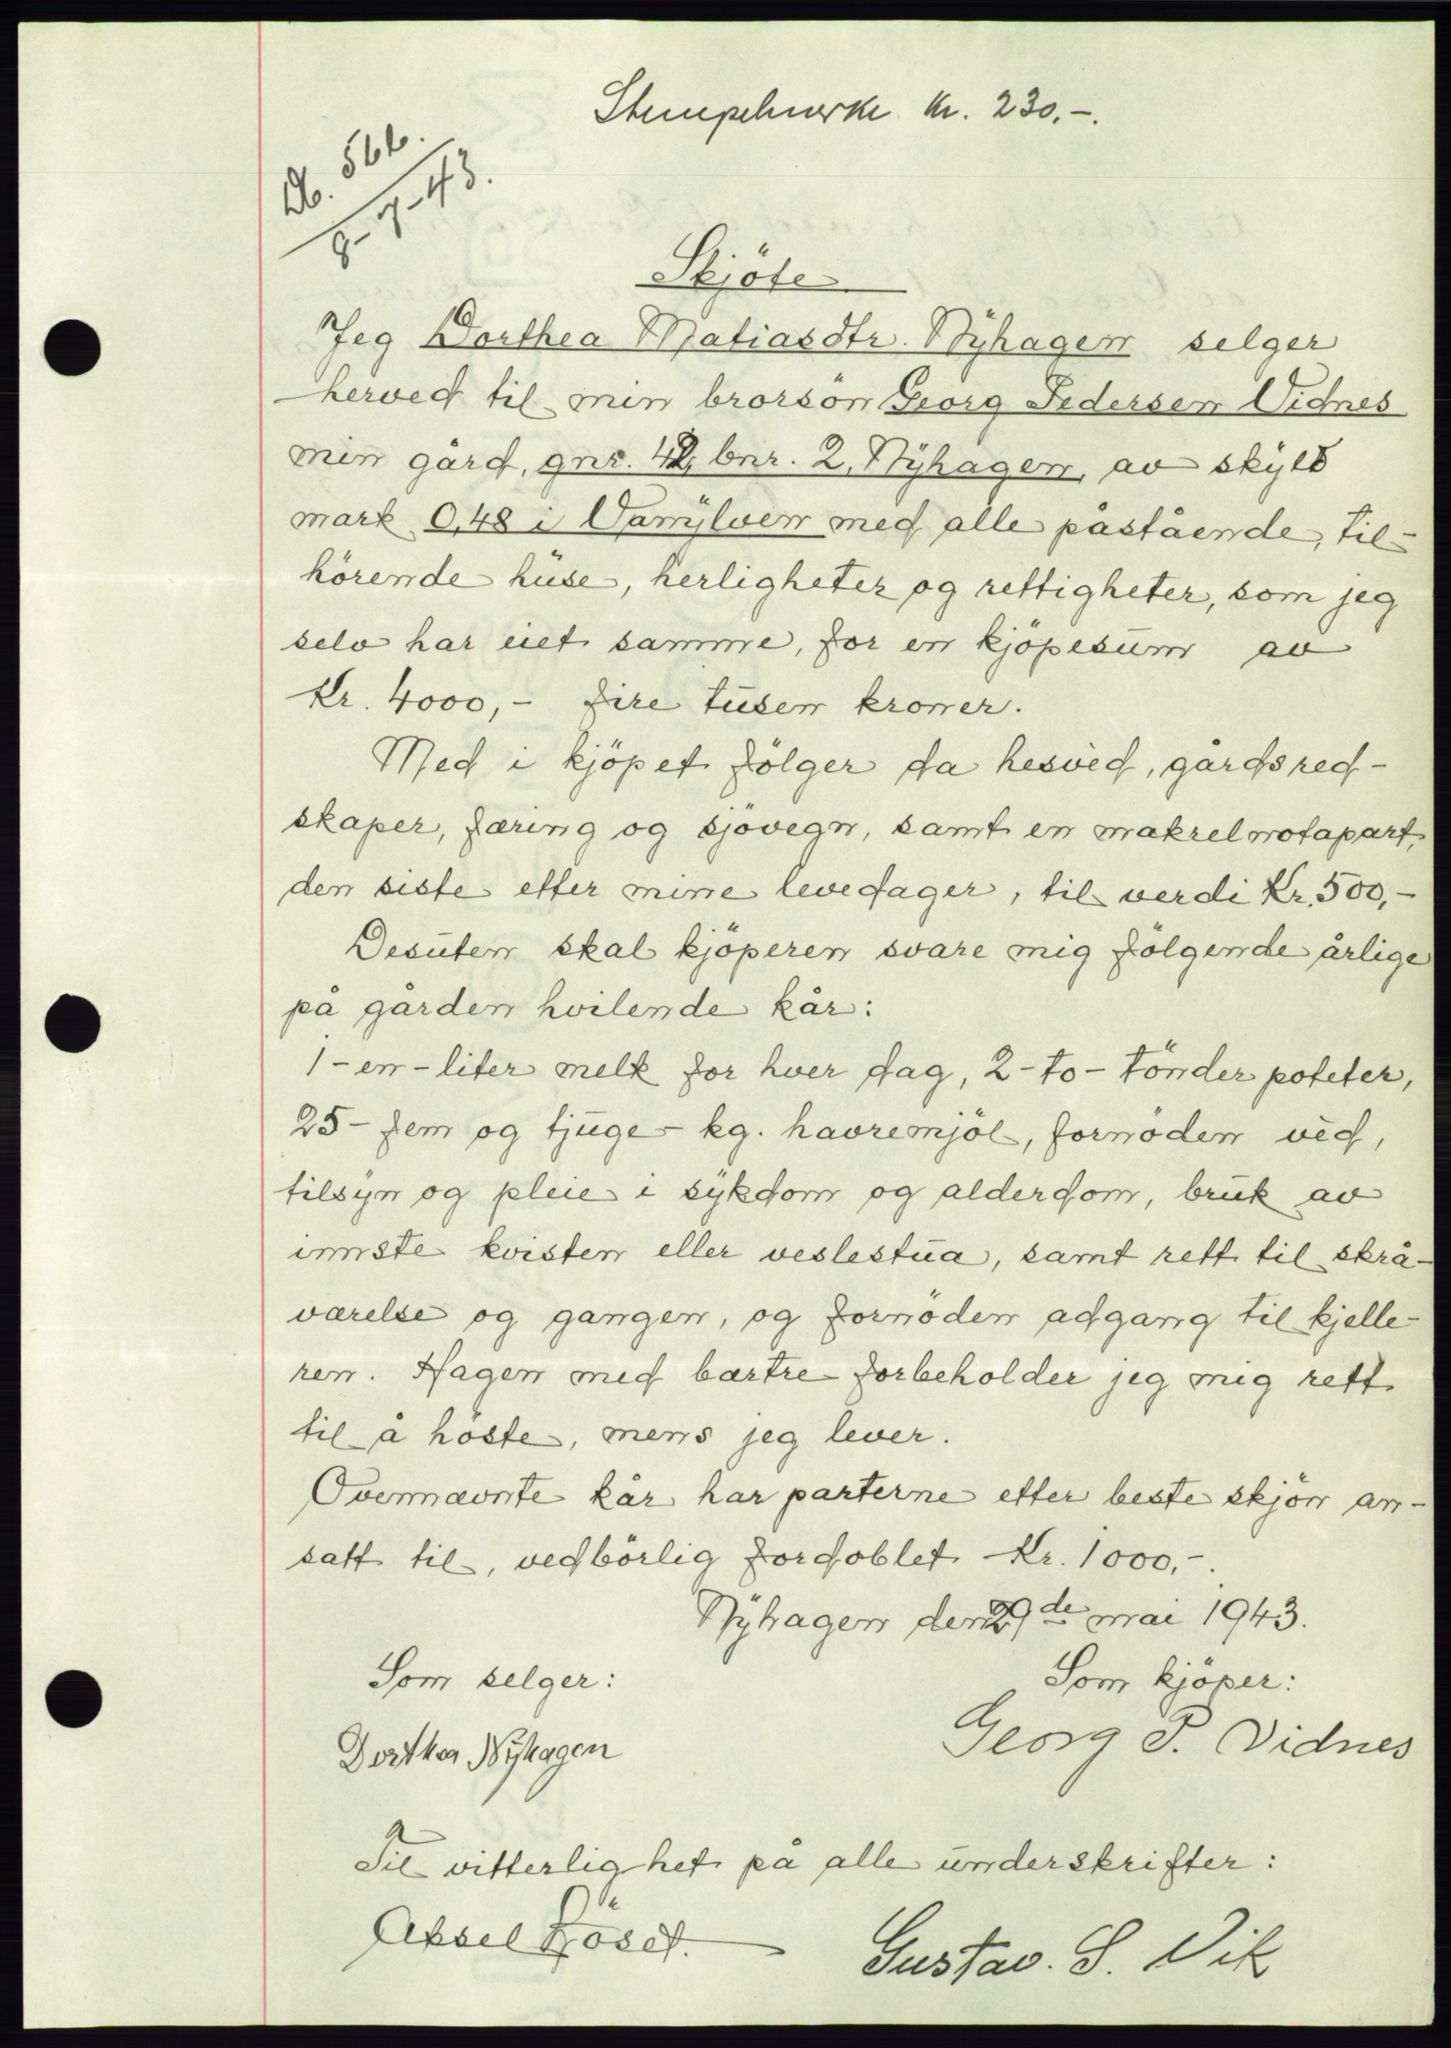 Stempelmerke kr. 230.-.
Db. 566.
8-7-43.
Skjöte
Jeg Dorthea Matiasdtr. Nyhagen selger
herved til min brorsön Georg Pedersen Vidnes
min gård, gnr. 42, bnr. 2, Nyhagen, av skyld
mark 0,48 i Vanylven med alle påstående, til-
hörende huse, herligheter og rettigheter, som jeg
selv har eiet samme, for en kjöpesum av
Kr. 4000,- fire tusen kroner.
Med i kjöpet fölger da hesved, gårdsred-
skaper, færing og sjövegn, samt en makrelnotapart,
den siste efter mine levedager, til verdi Kr. 500,-
Desuten skal kjöperen svare mig fölgende årlige
på gården hvilende kår:
1-en-liter melk for hver dag, 2-to-tönder poteter,
25-fem og tjuge- kg. havremjöl, fornöden ved,
tilsyn og pleie i sykdom og alderdom, bruk av
innste kvisten eller veslestua, samt rett til skrå-
værelse og gangen, og fornöden adgang til kjelle-
ren. Hagen med bærtre forbeholder jeg mig rett
til å höste, mens jeg lever.
Ovennævnte kår har parterne efter beste skjön an-
satt til, vedbörlig fordoblet Kr. 1000,-.
Nyhagen den 29de mai 1943.
Som selger:
Som kjöper:
Dorthea Nyhagen
Georg P. Vidnes
Til vitterlighet på alle underskrifter:
Aksel Röset.
Gustav. S. Vik